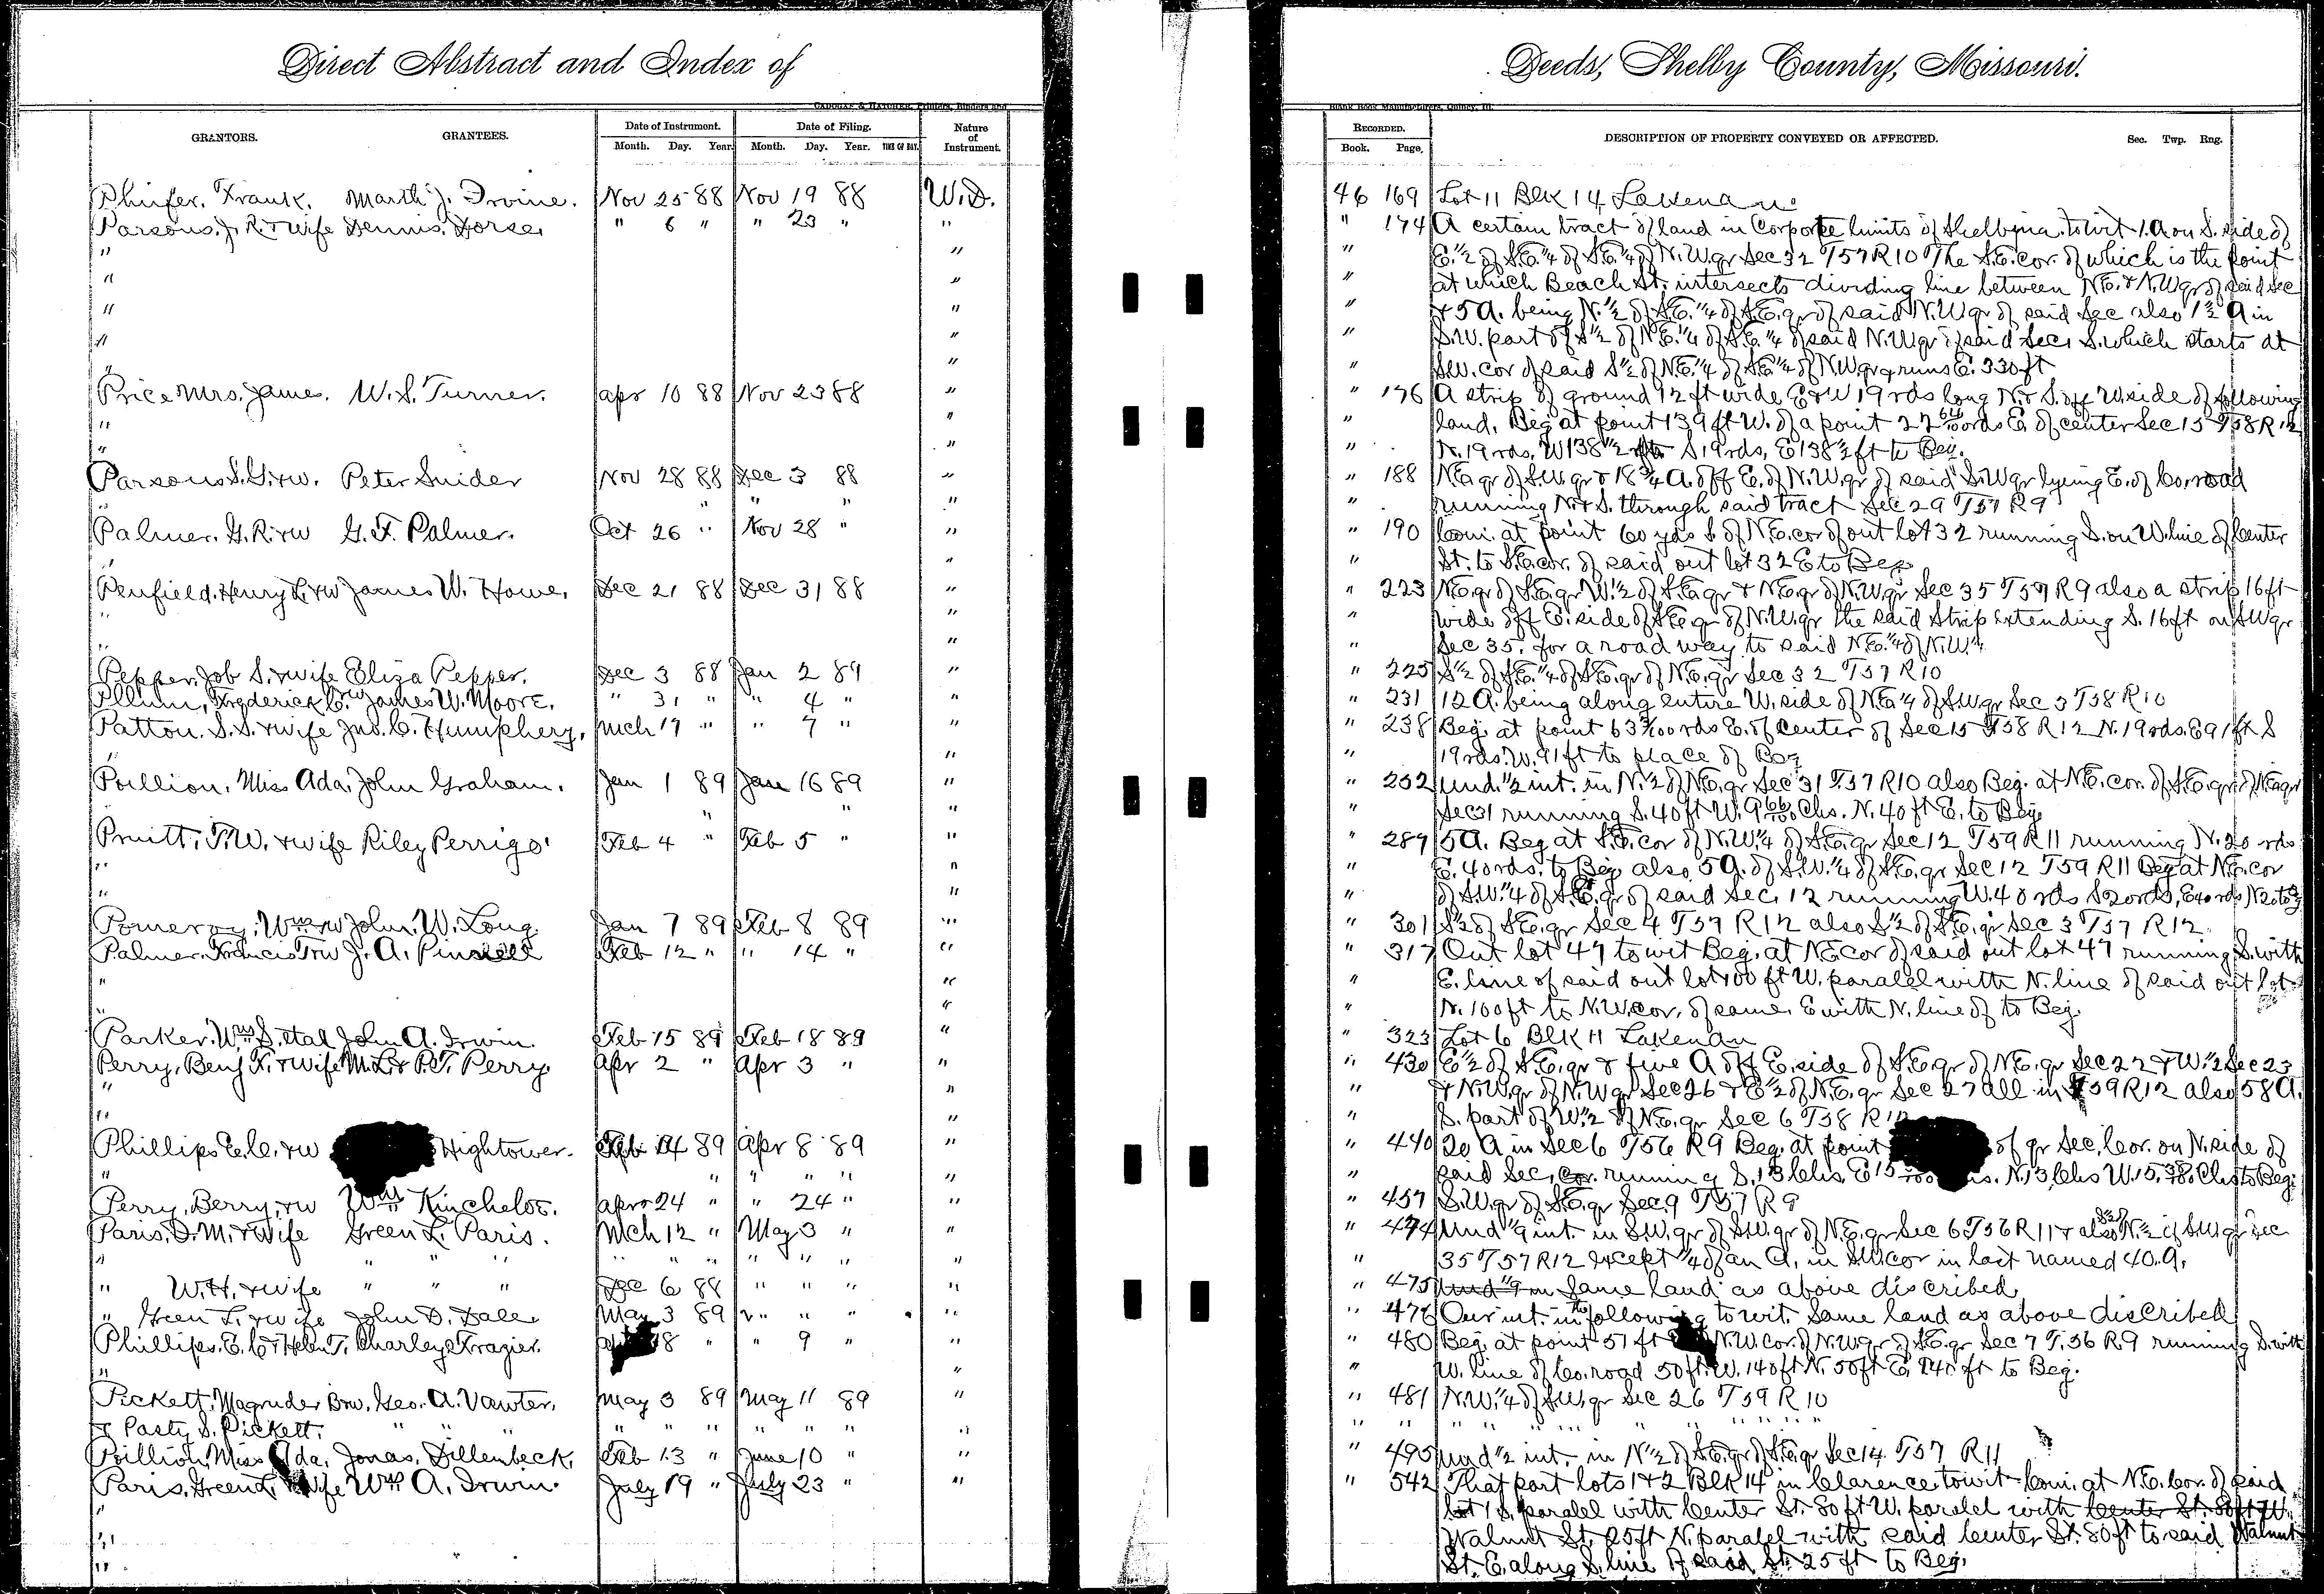 Direct Abstract and Index of
Deeds, Shelby County, Missouri.
CADOGAN & HATCHER, Printers, Binders and
Blank Book Manufacturers, Quincy, Ill.
GRANTORS. GRANTEES. Date of Instrument. Date of Filing. Nature of Instrument.
Month. Day. Year. Month. Day. Year. TIME OF DAY.
RECORDED. DESCRIPTION OF PROPERTY CONVEYED OR AFFECTED. Sec. Twp. Rng.
Book. Page.
Phifer, Frank. Marth J. Irvine. Nov 25 88 Nov 19 88 W.D. 46 169 Lot 11 Blk 14 Lakenan
Parsons, J. R. & wife Dennis Dorse " 6 " " 23 " " " 174 A certain tract of land in Corporate limits of Shelbyna. to wit 1. A on S. side of
" " " E. ½ of S.E. ¼ of S.E. ¼ of N.W. qr Sec 32 T57 R10 The S.E. cor. of which is the point
" " " at which Beach St. intersects dividing line between N.E. & N.W qr of said Sec
" " " & 5 A. being N. ½ of S.E. ¼ of S.E. qr of said N.W qr of said Sec also 1½ A in
" " " S.W. part of S ½ of N.E. ¼ of S.E. ¼ of said N.W qr of said Sec, S. which starts at
" " " S.W. cor of said S ½ of N.E. ¼ of S.E. ¼ of N.W qr & runs E. 330 ft
Price Mrs. James. W. S. Turner. Apr 10 88 Nov 23 88 " " 176 A strip of ground 12 ft wide E & W 19 rds long N. & S. off W. side of following
" " " land, Beg at point 139 ft W. of a point 22 rds E. of center Sec 15 T58 R12
" " " N. 19 rds, W 138 ½ ft S 19 rds, E 138 ½ ft to Beg.
Parsons S. S. & w. Peter Snider Nov 28 88 Dec 3 88 " " 188 N.E. qr of S.W. qr & 18 ¾ A. off E. of N.W. qr of said S.W qr lyeing E. of Co. road
" " " " " running N. & S. through said tract Sec 29 T57 R9
Palmer, G. R. & w G. F. Palmer. Oct 26 " Nov 28 " " " 190 Com. at point 60 yds S of N.E. cor of out lot 32 running S. on W. line of Center
" " " St. to S.E. cor. of said out lot 32 E to Beg
Penfield, Henry L. & w James W. Howe, Dec 21 88 Dec 31 88 " " 223 N.E. qr of S.E. qr W. ½ of S.E. qr & N.E. qr of N.W. qr Sec 35 T57 R9 also a strip 16 ft
" " " wide off E. side of S.E. qr of N.W. qr the said Strip extending S. 16 ft on S.W qr
" " " Sec 35. for a road way to said N.E. ¼ of N.W. ¼
Pepper, Job S. & wife Eliza Pepper. Dec 3 88 Jan 2 89 " " 225 S ½ of S.E. ¼ of S.E. qr of N.E. qr Sec 32 T57 R10
Pllum, Frederick C. & w James W. Moore. " 31 " " 4 " " " 231 12 A. being along entire W. side of N.E. ¼ of S.W. qr Sec 3 T58 R10
Patton. S. S. & wife Jno. C. Humphery, Mch 19 " " 7 " " " 238 Beg. at point 63 rds E. of center of Sec 15 T58 R12 N. 19 rds. E 91 ft S
" " " 19 rds. W. 91 ft to place of Beg
Poillion, Miss Ada, John Graham. Jan 1 89 Jan 16 89 " " 252 Und. ½ int. in N. ½ of N.E. qr Sec 31 T.57 R10 also Beg. at N.E. cor. of S.E. qr of N.E qr
" " " " Sec 31 running S. 40 ft W. 9 66/100 Chs. N. 40 ft E. to Beg.
Pruitt, T. W. & wife Riley Perrigo Feb 4 " Feb 5 " " " 289 5 A. Beg at S.E. cor of N.W. ¼ of S.E. qr Sec 12 T59 R11 running N. 20 rds
" " " E. 40 rds. to Beg. also 5 A. of S.W. ¼ of S.E. qr Sec 12 T59 R11 Beg at N.E. cor
" " " of S.W. ¼ of S.E. qr of said Sec. 12 running W. 40 rds S 20 rds, E 40 rds N 20 to
Pomeroy, Wm & w John. W. Long. Jan 7 89 Feb 8 89 " " 301 S ½ of S.E. qr Sec 4 T57 R12 also S ½ of S.E. qr Sec 3 T57 R12.
Palmer, Francis T & w J. A. Pinnell Feb 12 " " 14 " " " 317 Out lot 47 to wit Beg. at N.E cor of said out lot 47 running S. with
" " " E. line of said out lot 100 ft W. paralel with N. line of said out lot
" " " N. 100 ft to N.W. cor. of same. E with N. line of to Beg.
Parker, Wm S. etal John A. Irwin. Feb 15 89 Feb 18 89 " " 323 Lot 6 Blk 11 Lakenan
Perry, Benj F. & wife M. L. & P. T. Perry Apr 2 " Apr 3 " " " 430 E ½ of S.E. qr & five A off E. side of S.E. qr of N.E. qr Sec 22 & W. ½ Sec 23
" " " & N.W. qr of N.W qr Sec 26 & E ½ of N.E. qr Sec 27 all in T59 R12 also 58 A.
" " " S. part of W. ½ of N.E. qr Sec 6 T58 R12
Phillips E. C. & w Hightower. Feb 14 89 Apr 8 89 " " 440 20 A in Sec 6 T56 R9 Beg. at point of qr Sec, Cor. on N. side of
" " " " " " said Sec, cor. running S. 13 Chs, E 15 N. 13 Chs W. 15. Chs to Beg.
Perry, Berry, & w Wm Kincheloe. Apr 24 " " 24 " " " 457 S.W. qr of S.E. qr Sec 9 T57 R9
Paris, D. M. & wife Green L. Paris. Mch 12 " May 3 " " " 474 Und ⅑ int. in S.W. qr of S.W. qr of N.E. qr Sec 6 T56 R11 & also N. ½ of S.W qr Sec
" " " " " " " " " " " " 35 T57 R12 except ¼ of an A. in S.W cor in last named 40. A.
" W. H. & wife " " " Dec 6 88 " " " " " 475 Und ⅑ in Same land as above discribed
" Green L. & wife John D. Dale May 3 89 " " " " " 476 Our int. in the following to wit Same land as above discribed
Phillips. E. C. & Helen T. Charley Frazier. 8 " " 9 " " " 480 Beg. at point 51 ft N.W. Cor. of N.W. qr of S.E. qr Sec 7 T.56 R9 running S. with
" " " W. line of Co. road 50 ft. W. 140 ft N. 50 ft E. 140 ft to Beg.
Pickett, Magruder B & w. Geo. A. Vawter. May 3 89 May 11 89 " " 481 N.W. ¼ of S.W. qr Sec 26 T59 R10
& Pasty S. Pickett. " " " " " " " " " " " " " " " " "
Poillion, Miss Ada, Jonas, Dillenbeck. Feb 13 " June 10 " " " 495 Und ½ int. in N ½ of S.E. qr of S.E. qr Sec 14 T57 R11
Paris, Green L. & wife Wm A. Irwin. July 19 " July 23 " " " 542 That part lots 1 & 2 Blk 14 in Clarence, to wit Com. at N.E. Cor. of said
" lot 1 S. paralel with Center St. 80 ft W. paralel with Center St. 80 ft W.
" Walnut St. 25 ft N. paralel with said Center St. 80 ft to said Walnut
" St. E. along S. line of said St. 25 ft to Beg.